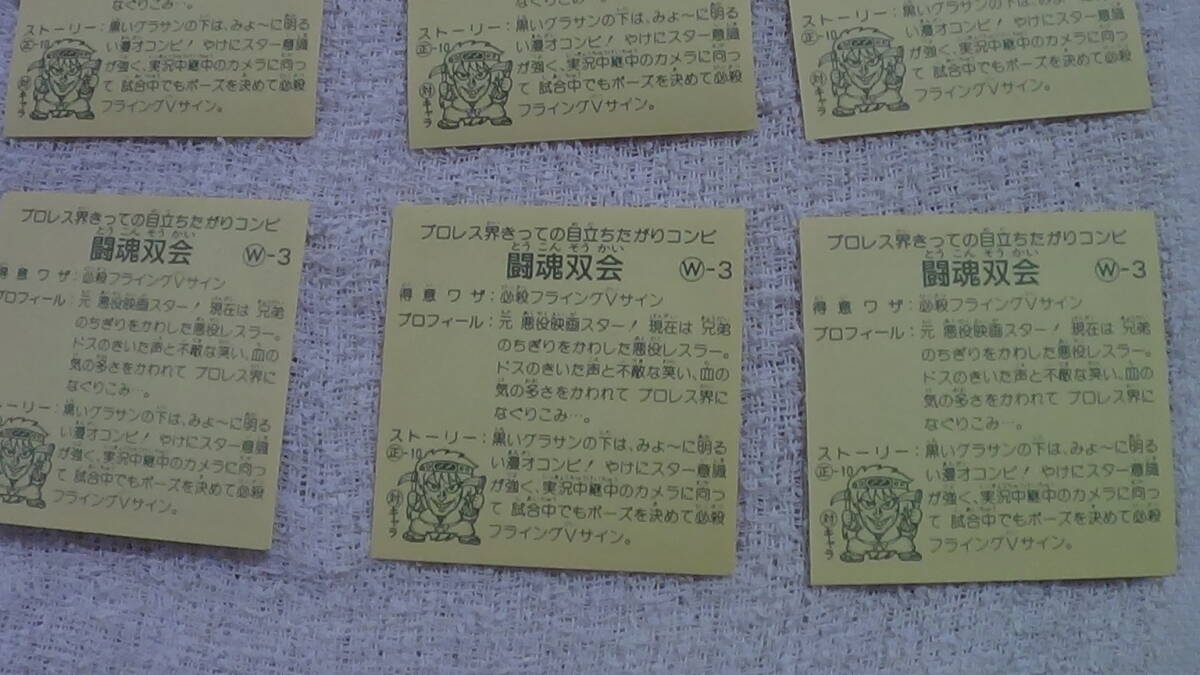 なぐりこみ…。
ストーリー：黒いグラサンの下は、みょ〜に明る
い漫才コンビ！やけにスター意識
が強く、実況中継中のカメラに向っ
て 試合中でもポーズを決めて必殺
フライングVサイン。
正-10
対キャラ
なぐりこみ…。
ストーリー：黒いグラサンの下は、みょ〜に明る
い漫才コンビ！やけにスター意識
が強く、実況中継中のカメラに向っ
て 試合中でもポーズを決めて必殺
フライングVサイン。
正-10
対キャラ
ストーリー：黒いグラサンの下は、みょ〜に明る
い漫才コンビ！やけにスター意識
が強く、実況中継中のカメラに向っ
て 試合中でもポーズを決めて必殺
フライングVサイン。
正-10
対キャラ
プロレス界きっての目立ちたがりコンビ
とうこんそうかい
闘魂双会
W-3
得意ワザ：必殺フライングVサイン
プロフィール：元 悪役映画スター！現在は 兄弟
のちぎりをかわした悪役レスラー。
ドスのきいた声と不敵な笑い、血の
気の多さをかわれて プロレス界に
なぐりこみ…。
ストーリー：黒いグラサンの下は、みょ〜に明る
い漫才コンビ！やけにスター意識
が強く、実況中継中のカメラに向っ
て 試合中でもポーズを決めて必殺
フライングVサイン。
プロレス界きっての目立ちたがりコンビ
とうこんそうかい
闘魂双会
W-3
得意ワザ：必殺フライングVサイン
プロフィール：元 悪役映画スター！現在は 兄弟
のちぎりをかわした悪役レスラー。
ドスのきいた声と不敵な笑い、血の
気の多さをかわれて プロレス界に
なぐりこみ…。
ストーリー：黒いグラサンの下は、みょ〜に明る
い漫才コンビ！やけにスター意識
が強く、実況中継中のカメラに向っ
て 試合中でもポーズを決めて必殺
フライングVサイン。
正-10
対キャラ
プロレス界きっての目立ちたがりコンビ
とうこんそうかい
闘魂双会
W-3
得意ワザ：必殺フライングVサイン
プロフィール：元 悪役映画スター！現在は 兄弟
のちぎりをかわした悪役レスラー。
ドスのきいた声と不敵な笑い、血の
気の多さをかわれて プロレス界に
なぐりこみ…。
ストーリー：黒いグラサンの下は、みょ〜に明る
い漫才コンビ！やけにスター意識
が強く、実況中継中のカメラに向っ
て 試合中でもポーズを決めて必殺
フライングVサイン。
正-10
対キャラ